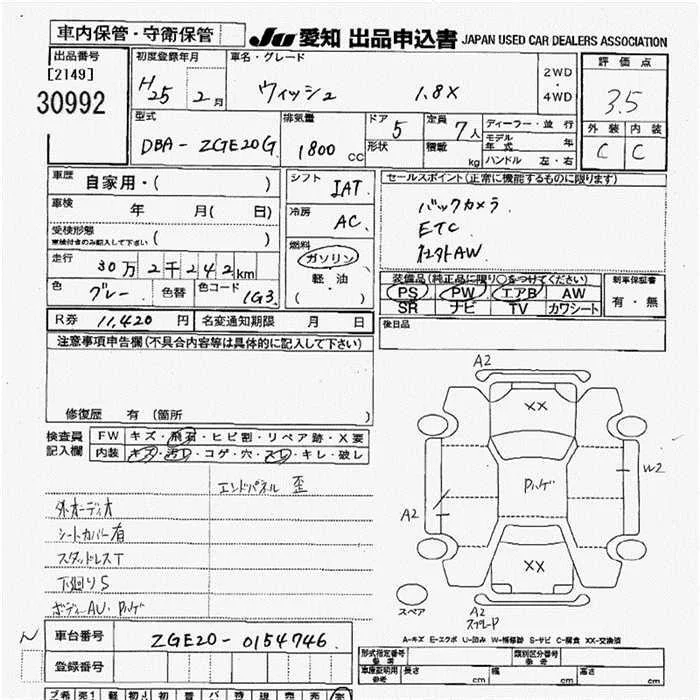 車内保管・守衛保管
JU 愛知 出品申込書 JAPAN USED CAR DEALERS ASSOCIATION
出品番号
[2149]
30992
初度登録年月
H25 2月
車名・グレード
ウィッシュ 1.8X
2WD
・
4WD
評価点
3.5
外装 内装
C C
型式
DBA-ZGE20G
排気量
1800 cc
ドア 5
形状
定員 7人
積載 kg
ディーラー・並行
モデル年式 年
ハンドル 左・右
車歴 自家用・( )
車検 年 月( 日)
受検形態
車検付きのみ記入して下さい ( )
走行 30万2千242km
色 グレー 色替 色コード 1G3
シフト
IAT
冷房
AC
燃料
ガソリン
軽・油
( )
セールスポイント(正常に機能するものに限ります)
バックカメラ
ETC
社外AW
装備品(純正品に限り○をつけてください)
PS PW エアB AW
SR ナビ TV カワシート
新車保証書
有・無
R券 11,420円 名変通知期限 月 日
後日品
注意事項申告欄(不具合内容等は具体的に記入して下さい)
修復歴 有(箇所 )
検査員
記入欄
FW キズ・飛石・ヒビ割・リペア跡・X要
内装 キズ・汚れ・コゲ・穴・スレ・キレ・破レ
エンドパネル 歪
外オーディオ
シートカバー有
スタッドレスT
下廻りS
ボディーAU・Pハゲ
A2
XX
Pハゲ
W2
A2
XX
スペア
A2
スプレーP
A-キズ E-エクボ U-凹み W-補修跡 S-サビ C-腐食 XX-交換済
車台番号 ZGE20-0154746
登録番号
形式指定番号
類別区分番号
車庫証明用 長さ cm 幅 cm 高さ cm